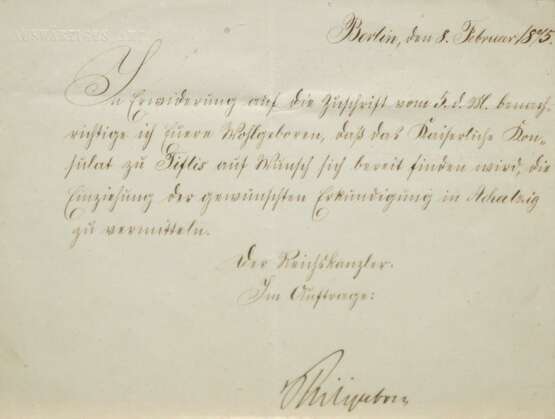 Berlin, den 8. Februar 1875.
In Erwiderung auf die Zuschrift vom 5. d. M. benach-
richtige ich Euere Wohlgeboren, daß das Kaiserliche Kon-
sulat zu Tiflis auf Wunsch sich bereit finden wird, die
Einziehung der gewünschten Erkundigung in Achalzig
zu vermitteln.
Der Reichskanzler.
Im Auftrage: